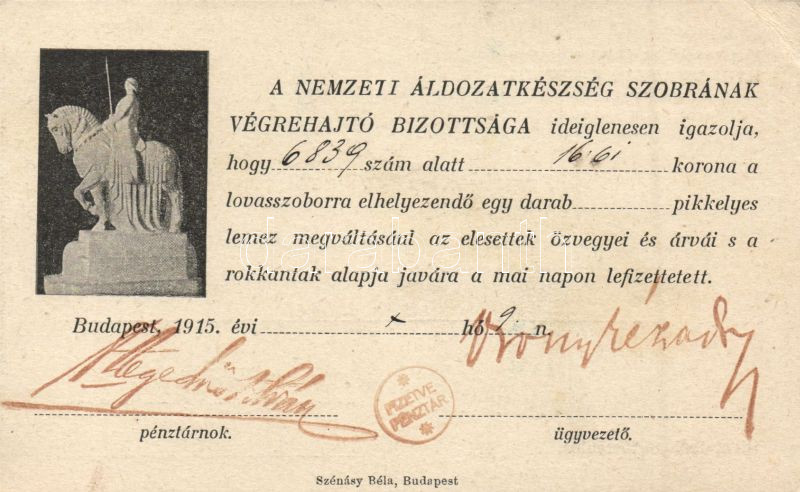 A NEMZETI ÁLDOZATKÉSZSÉG SZOBRÁNAK
VÉGREHAJTÓ BIZOTTSÁGA ideiglenesen igazolja,
hogy 6839 szám alatt korona a
lovasszoborra elhelyezendő egy darab pikkelyes
lemez megváltásául az elesettek özvegyei és árvái s a
rokkantak alapja javára a mai napon lefizettetett.
Budapest, 1915. évi x hó 9 n.
FIZETVE
PÉNZTÁR
pénztárnok. ügyvezető.
Szénásy Béla, Budapest